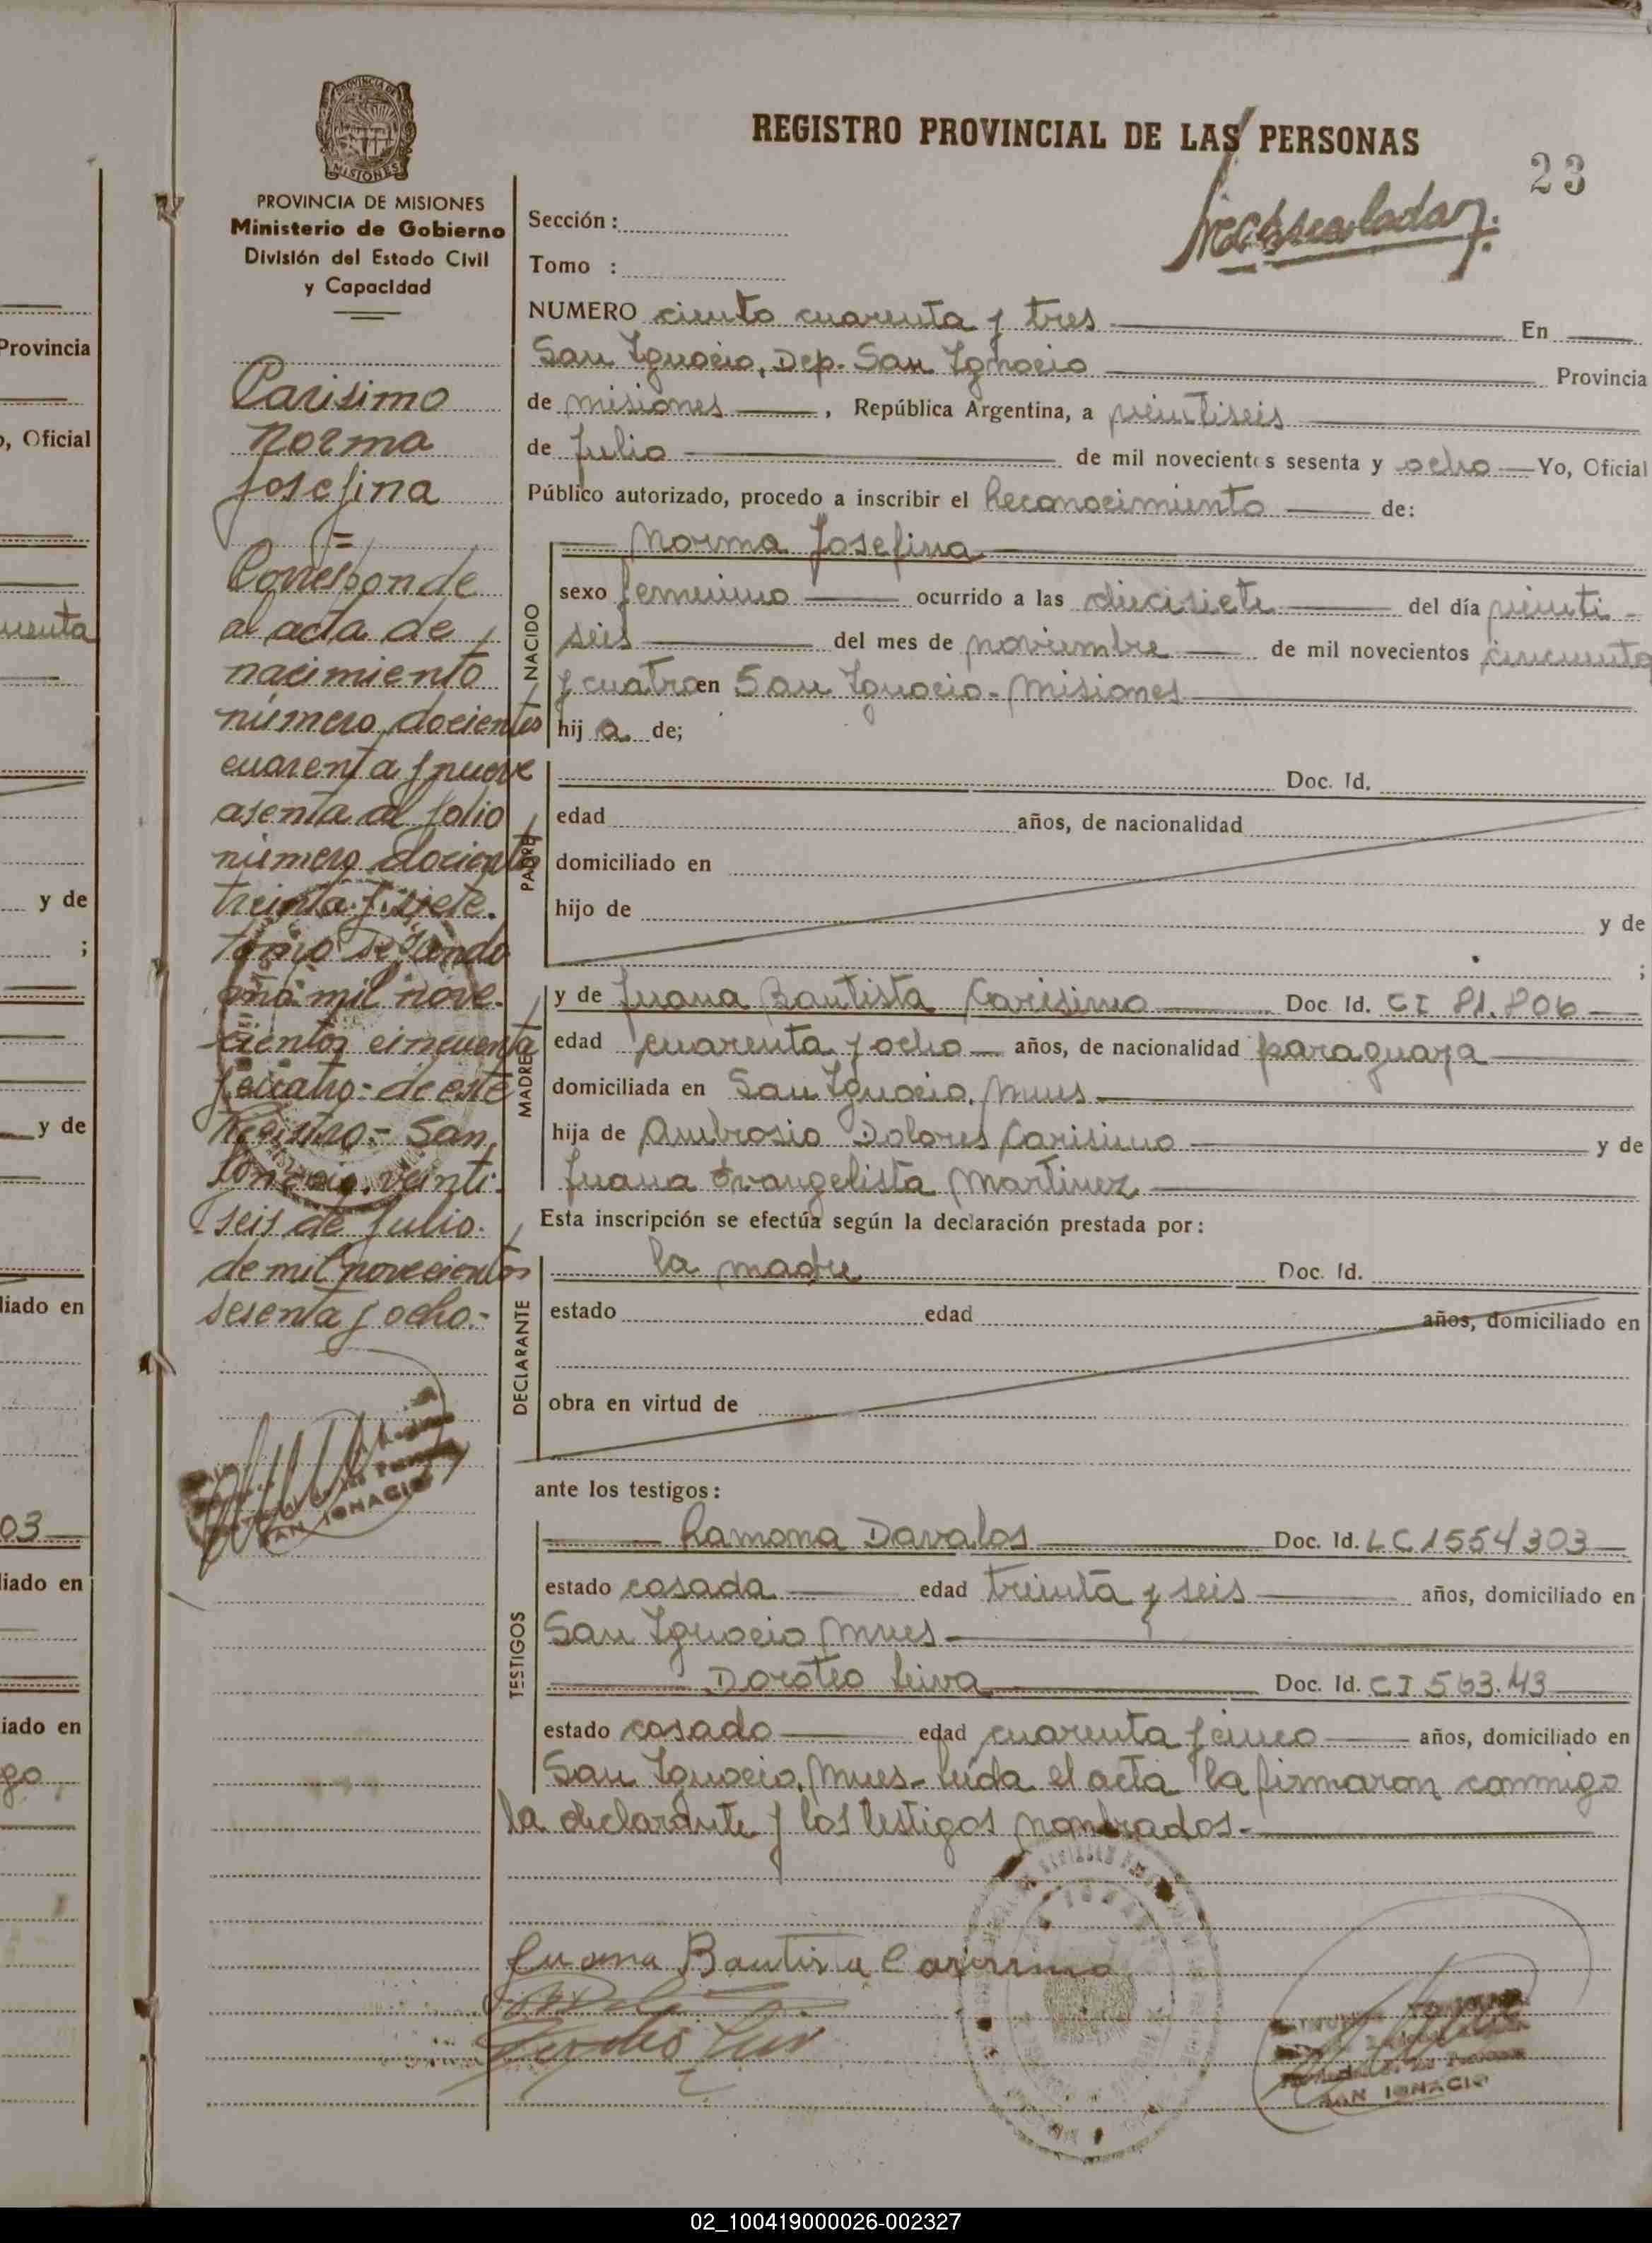 REGISTRO PROVINCIAL DE LAS PERSONAS
23
PROVINCIA DE MISIONES
Ministerio de Gobierno
División del Estado Civil
y Capacidad
Carisimo
Norma
Josefina
=
Corresponde
al acta de
nacimiento
número docientos
cuarenta y nueve
asenta al folio
número docientos
treinta y siete.
tomo segundo
año mil nove-
cientos cincuenta
y cuatro - de este
Registro.- San
Ignacio, veinti-
seis de Julio.
de mil novecientos
sesenta y ocho.-
SAN IGNACIO
Sección:
Tomo :
NUMERO ciento cuarenta y tres En
San Ignacio, Dep. San Ignacio Provincia
de misiones , República Argentina, a veintiseis
de Julio de mil novecientos sesenta y ocho Yo, Oficial
Público autorizado, procedo a inscribir el Reconocimiento de:
NACIDO
Norma Josefina
sexo femenino ocurrido a las diecisiete del día veinti-
seis del mes de noviembre de mil novecientos cincuenta
y cuatro en San Ignacio - Misiones
hij a de;
PADRE
Doc. Id.
edad años, de nacionalidad
domiciliado en
hijo de y de
;
MADRE
y de Juana Bautista Carisimo Doc. Id. CI 81.806
edad cuarenta y ocho años, de nacionalidad paraguaya
domiciliada en San Ignacio, Mnes
hija de Ambrosio Dolores Carisimo y de
Juana Evangelista Martinez
Esta inscripción se efectúa según la declaración prestada por:
DECLARANTE
la madre Doc. Id.
estado edad años, domiciliado en
obra en virtud de
ante los testigos:
TESTIGOS
Ramona Davalos Doc. Id. LC 1554303
estado casada edad treinta y seis años, domiciliado en
San Ignacio Mnes
Doroteo Leiva Doc. Id. CI 563.43
estado casado edad cuarenta y cinco años, domiciliado en
San Ignacio, Mnes - Leída el acta la firmaron conmigo
la declarante y los testigos nombrados.-
Juana Bautista Carisimo
SAN IGNACIO
Provincia
o, Oficial
uenta
y de
;
y de
liado en
03
liado en
iado en
go
02_100419000026-002327